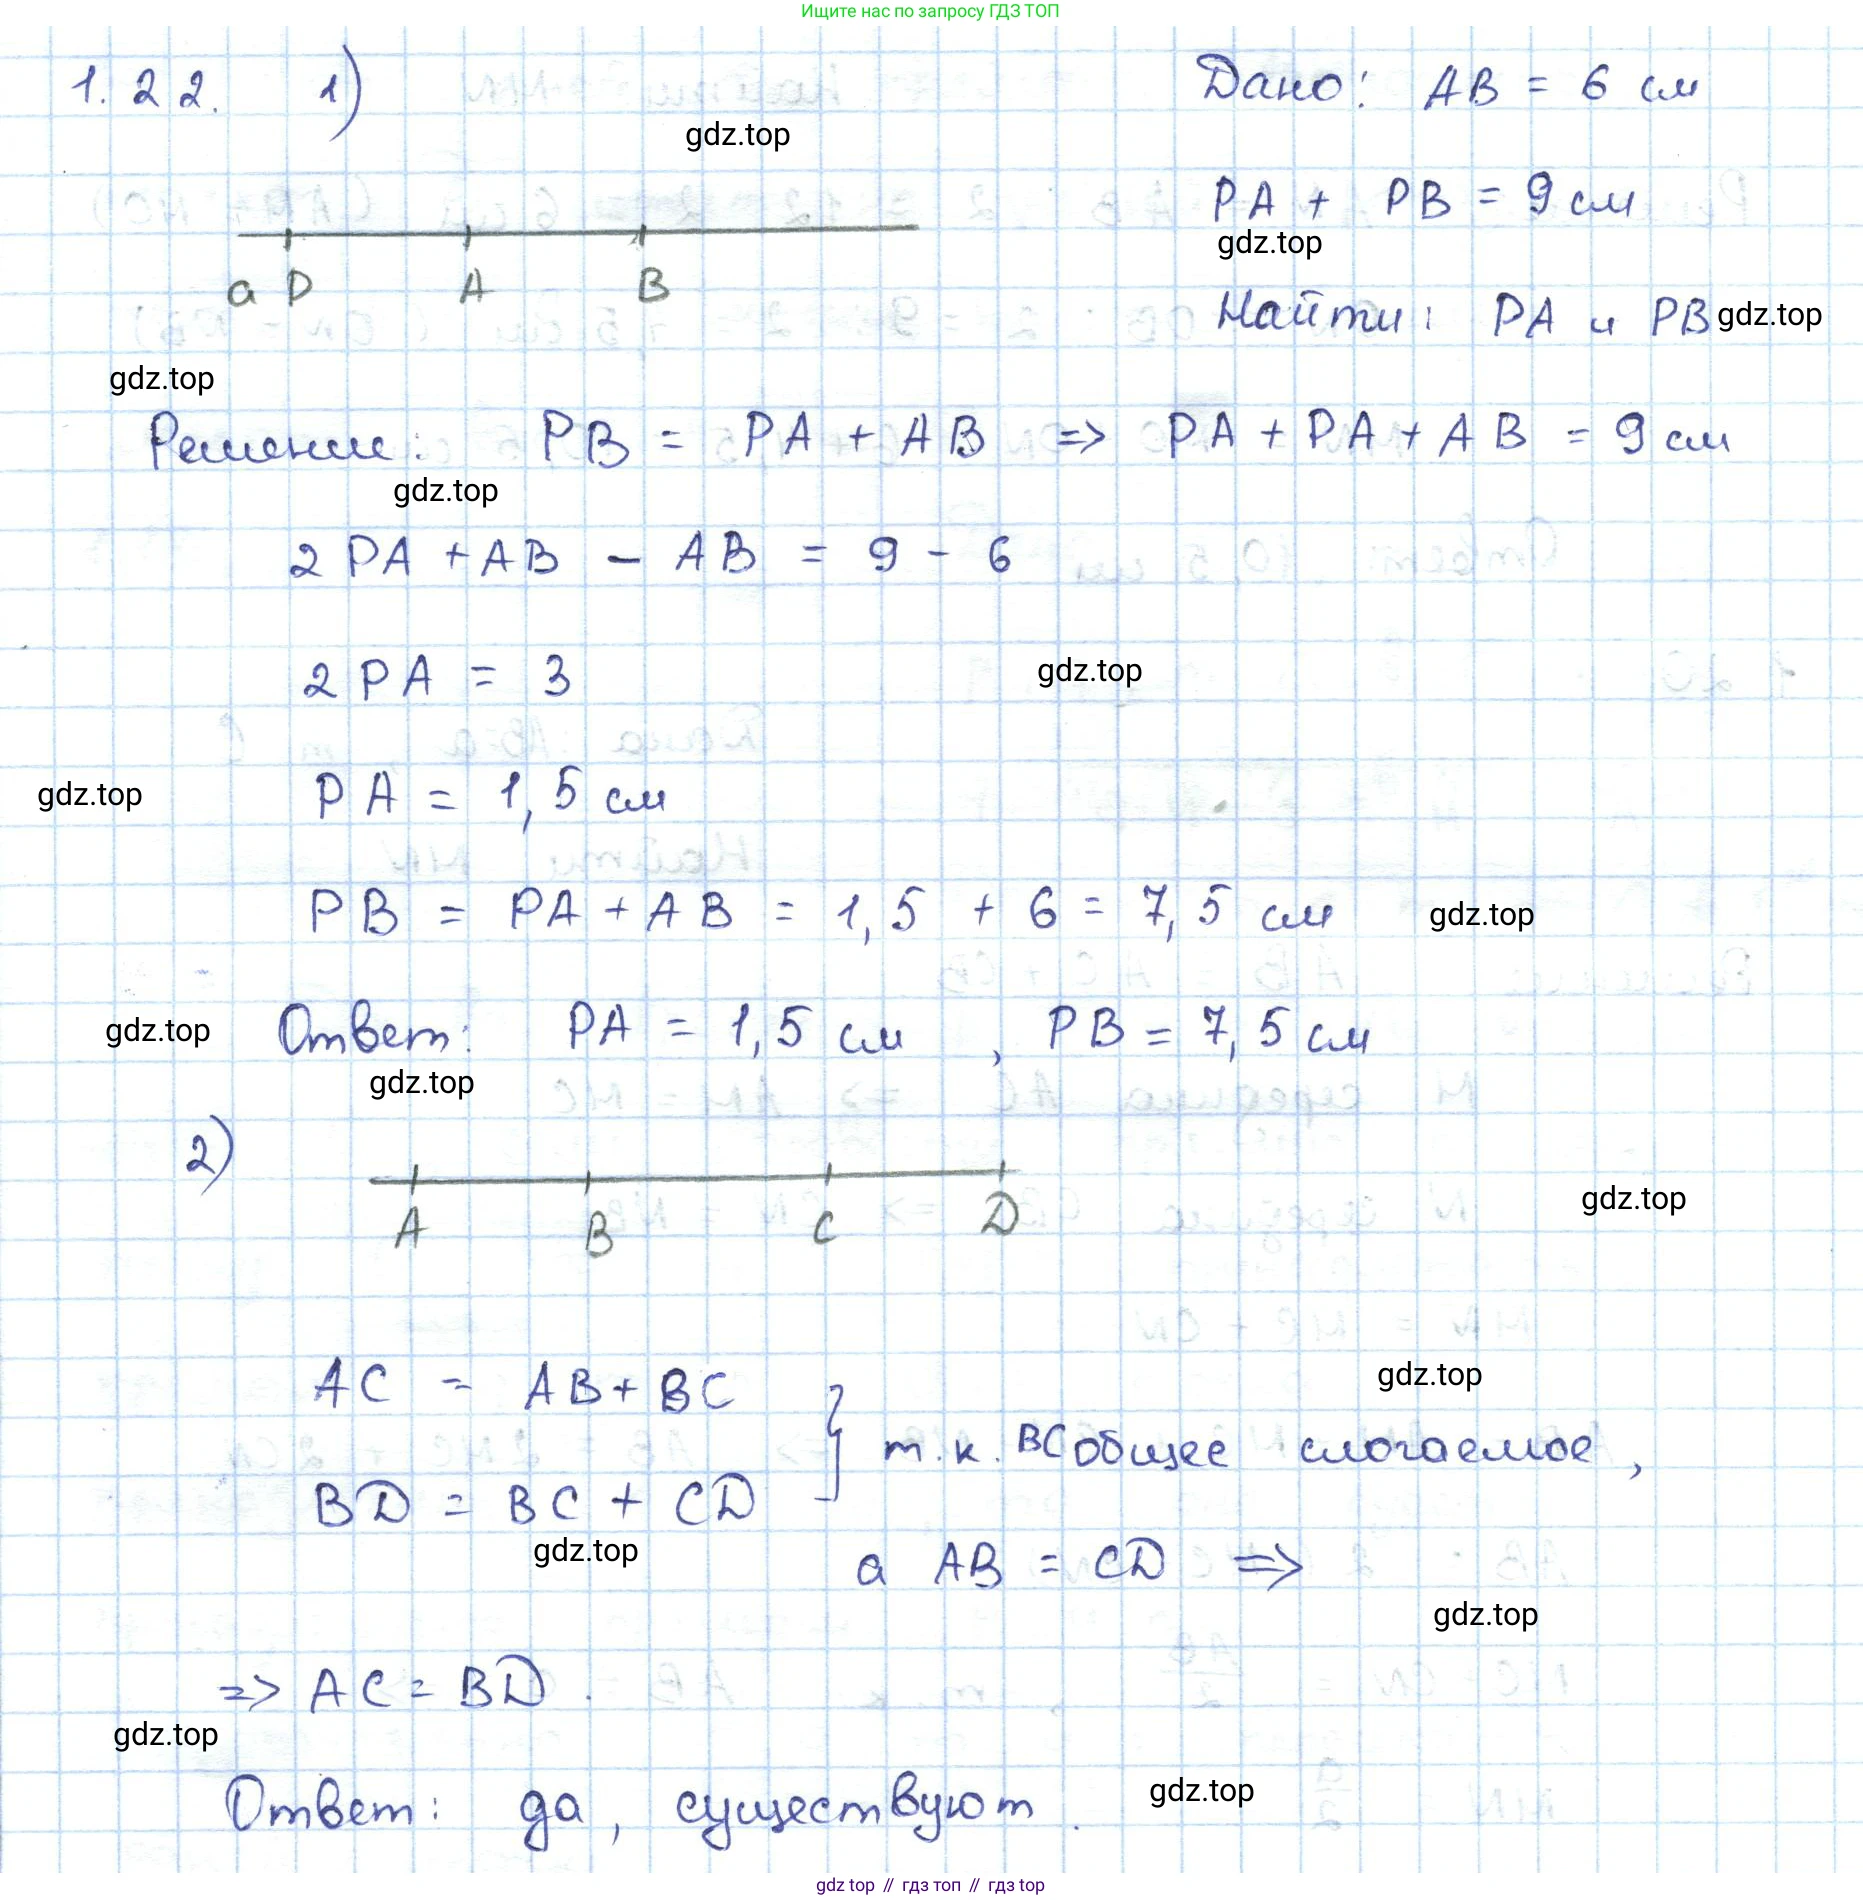 Ищите нас по запросу ГДЗ ТОП
1.22. 1) Дано: AB = 6 см
gdz.top
PA + PB = 9 см
gdz.top
a P A B
Найти: PA и PB gdz.top
gdz.top
Решение: PB = PA + AB => PA + PA + AB = 9 см
gdz.top
2 PA + AB - AB = 9 - 6
2 PA = 3 gdz.top
gdz.top PA = 1,5 см
PB = PA + AB = 1,5 + 6 = 7,5 см gdz.top
gdz.top Ответ: PA = 1,5 см , PB = 7,5 см
gdz.top
2)
A B C D gdz.top
AC = AB + BC gdz.top
т.к. BC общее слогаемое,
BD = BC + CD
gdz.top
а AB = CD =>
gdz.top
=> AC = BD.
gdz.top
Ответ: да, существуют. gdz.top
gdz top // гдз топ // gdz top